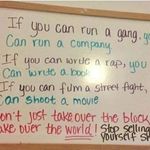 If you can run a gang, yo
Can run a company
If you can write a rap, you
Can write a book
If you can film a street fight,
Can shoot a movie
Don't just take over the block
ake over the world! Stop selling
yourself sh